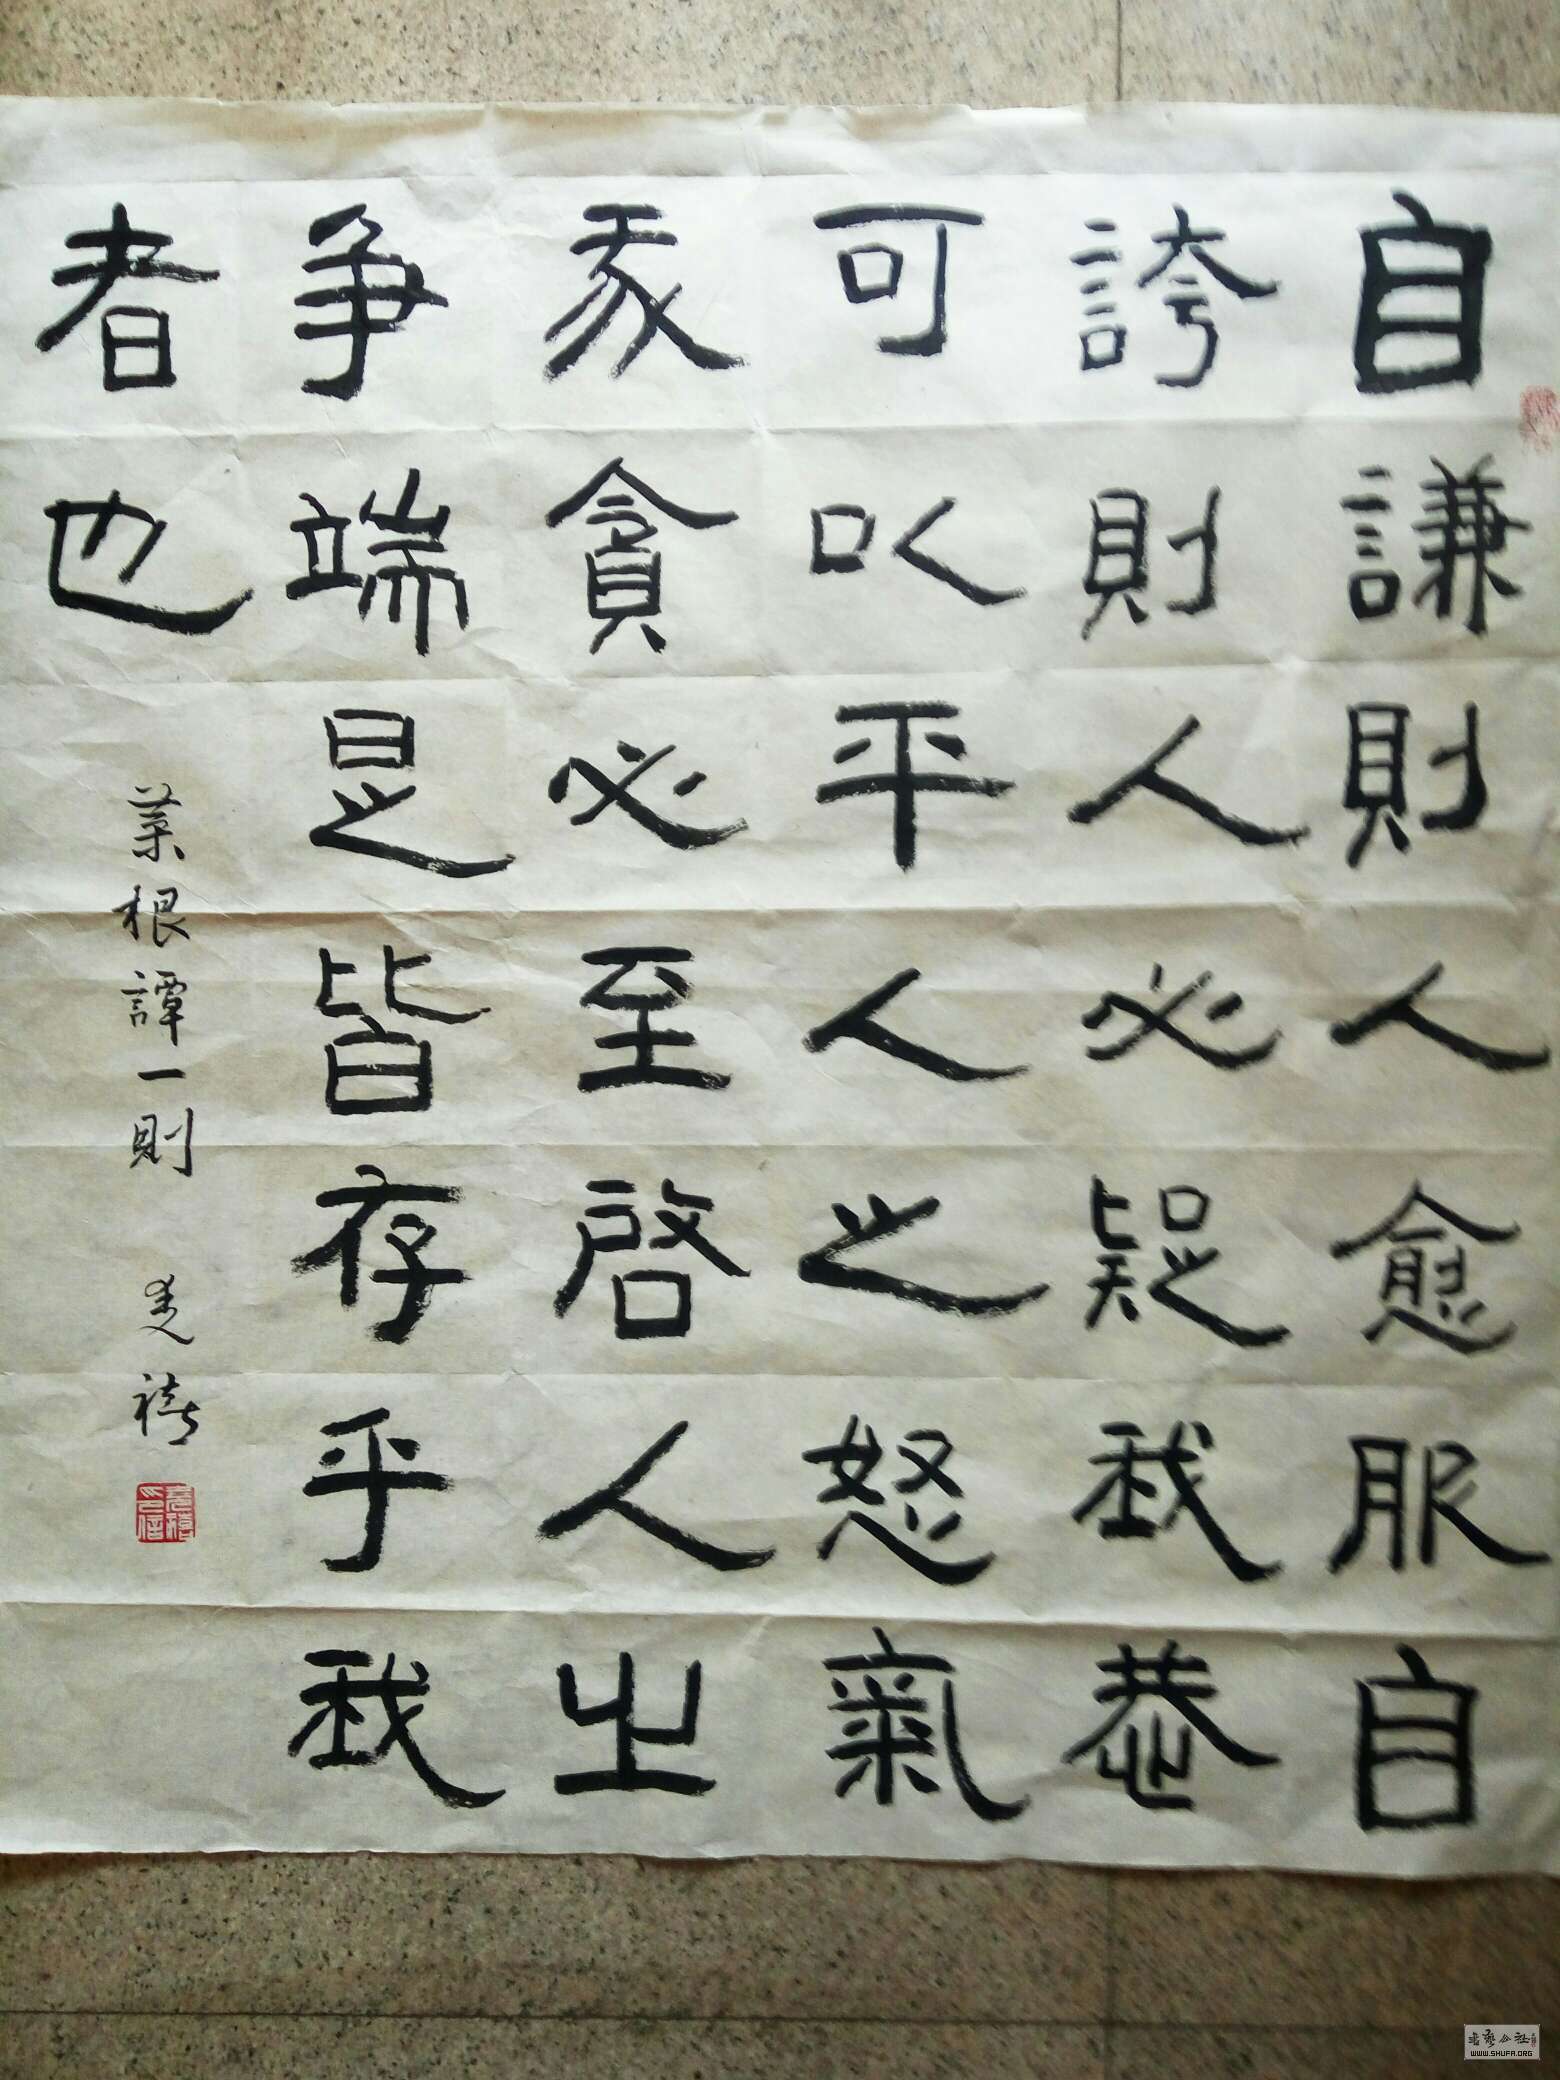 自謙則人愈服自
誇則人必疑我恭
可以平人之怒氣
我貪必至啓人之
爭端是皆存乎我
者也
菜根譚一則
禧
書藝公社
WWW.SHUFA.ORG